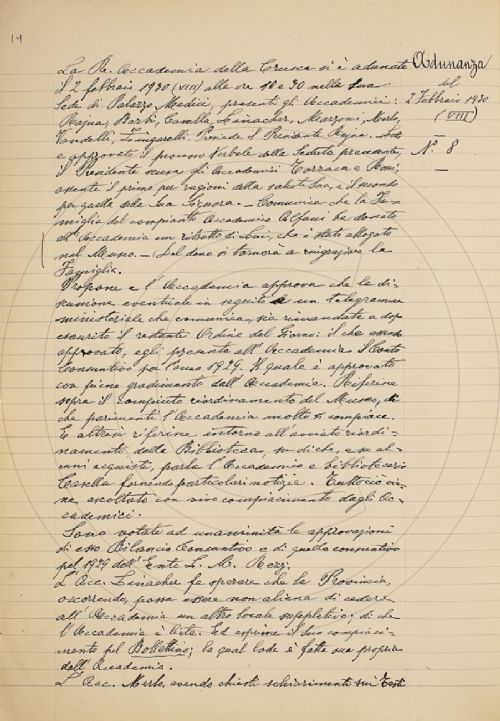 14
La R. Accademia della Crusca si è adunata
il 2 febbraio 1930 (VIII) alle ore 10 e 30 nella sua
Sede di Palazzo Medici, presenti gli Accademici:
Rajna, Barbi, Casella, Linacher, Mazzoni, Merlo,
Vandelli, Zingarelli. Presiede il Presidente Rajna.
e approvato il processo Verbale della Seduta precedente,
il Presidente scusa gli Accademici Torraca e
assente il primo per ragioni della salute sua, e il secondo
per quelle della sua Signora. — Comunica che la Fa-
miglia del compianto Accademico Alfani ha donato
all'Accademia un ritratto di Lui, che è stato allogato
nel Museo. — Del dono si tornerà a ringraziare la
Famiglia.
Propone e l'Accademia approva che la di-
scussione eventuale in seguito a un telegramma
ministeriale che comunica, sia rimandata a dopo
esaurito il restante Ordine del Giorno: il che essendo
approvato, egli presenta all'Accademia il Conto
Consuntivo per l'anno 1929. Il quale è approvato
con pieno gradimento dell'Accademia. Riferisce
sopra il compiuto riordinamento del Museo, di
che parimenti l'Accademia molto si compiace.
E altresì riferisce intorno all'avviato riordi-
namento della Biblioteca, su di che, e su al-
cuni acquisti, parla l'Accademico e bibliotecario
Casella fornendo particolari notizie. Tutto ciò vie-
ne ascoltato con vivo compiacimento dagli Ac-
cademici.
Sono votate ad unanimità le approvazioni
di esso Bilancio Consuntivo e di quello consuntivo
pel 1929 dell'Ente L. M. Rezzi.
L'Acc. Linacher fa sperare che la Provincia,
occorrendo, possa essere non aliena di cedere
all'Accademia un altro locale suppletivo: di che
l'Accademia è lieta. Ed esprime il suo compiaci-
mento pel Bollettino; la qual lode è fatta sua propria
dall'Accademia.
L'Acc. Merlo, avendo chiesti schiarimenti sui Testi
Adunanza
del
2 Febbraio 1930
(VIII)
N.° 8